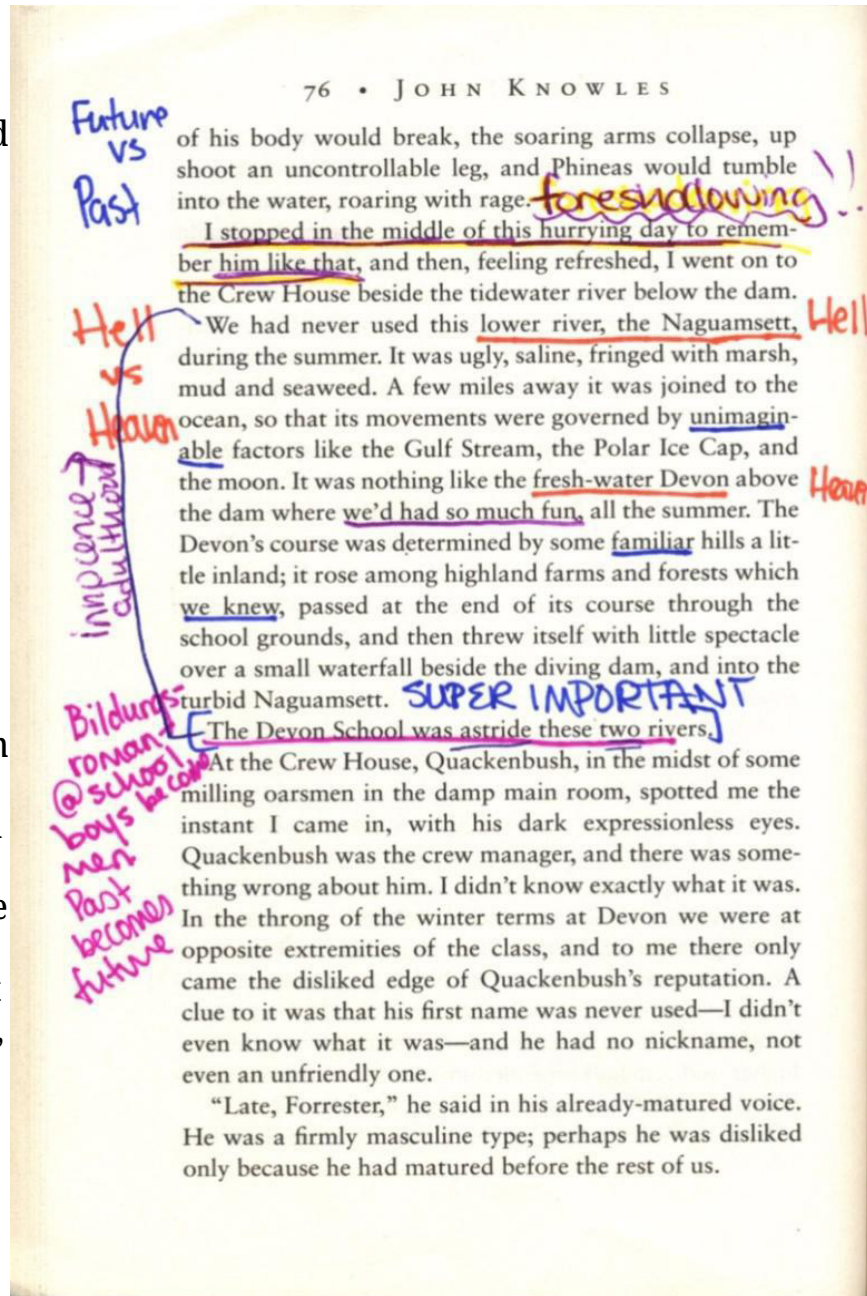 76 • JOHN KNOWLES
Future
vs
Past
of his body would break, the soaring arms collapse, up
shoot an uncontrollable leg, and Phineas would tumble
into the water, roaring with rage. foreshadowing!!
I stopped in the middle of this hurrying day to remem-
ber him like that, and then, feeling refreshed, I went on to
the Crew House beside the tidewater river below the dam.
Hell
vs
Heaven
We had never used this lower river, the Naguamsett, Hell
during the summer. It was ugly, saline, fringed with marsh,
mud and seaweed. A few miles away it was joined to the
ocean, so that its movements were governed by unimagin-
able factors like the Gulf Stream, the Polar Ice Cap, and
the moon. It was nothing like the fresh-water Devon above Heaven
the dam where we'd had so much fun, all the summer. The
Devon's course was determined by some familiar hills a lit-
tle inland; it rose among highland farms and forests which
we knew, passed at the end of its course through the
school grounds, and then threw itself with little spectacle
over a small waterfall beside the diving dam, and into the
turbid Naguamsett. SUPER IMPORTANT
innocence →
adulthood
[The Devon School was astride these two rivers.]
Bildungs-
roman -
@ school
boys become
men
Past
becomes
future
At the Crew House, Quackenbush, in the midst of some
milling oarsmen in the damp main room, spotted me the
instant I came in, with his dark expressionless eyes.
Quackenbush was the crew manager, and there was some-
thing wrong about him. I didn't know exactly what it was.
In the throng of the winter terms at Devon we were at
opposite extremities of the class, and to me there only
came the disliked edge of Quackenbush's reputation. A
clue to it was that his first name was never used—I didn't
even know what it was—and he had no nickname, not
even an unfriendly one.
"Late, Forrester," he said in his already-matured voice.
He was a firmly masculine type; perhaps he was disliked
only because he had matured before the rest of us.